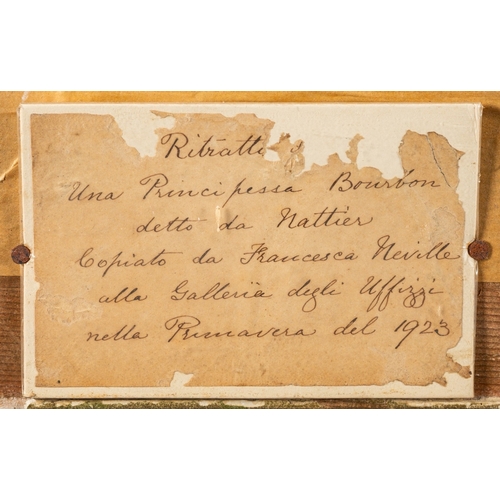 Ritratto
Una Principessa Bourbon
detto da Nattier
Copiato da Francesca Neville
alla Galleria degli Uffizzi
nella Primavera del 1923